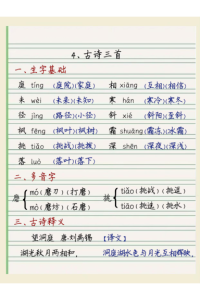 4、古诗三首
一、生字基础
庭 tíng (庭院)(家庭) 相 xiāng (互相)(相信)
未 wèi (未来)(未知) 寒 hán (寒冷)(寒冬)
径 jìng (路径)(小径) 斜 xié (斜阳)(斜坡)
枫 fēng (枫叶)(枫树) 霜 shuāng (霜冻)(冰霜)
挑 tiǎo (挑战)(挑拨) 深 shēn (深夜)(深浅)
落 luò (落叶)(落下)
二、多音字
磨 mó (磨刀)(打磨) 挑 tiǎo (挑战)(挑逗)
mò (磨坊)(石磨) tiāo (挑选)(挑水)
三、古诗释义
望洞庭 唐·刘禹锡 【译文】
湖光秋月两相和, 洞庭湖水色与月光互相辉映,